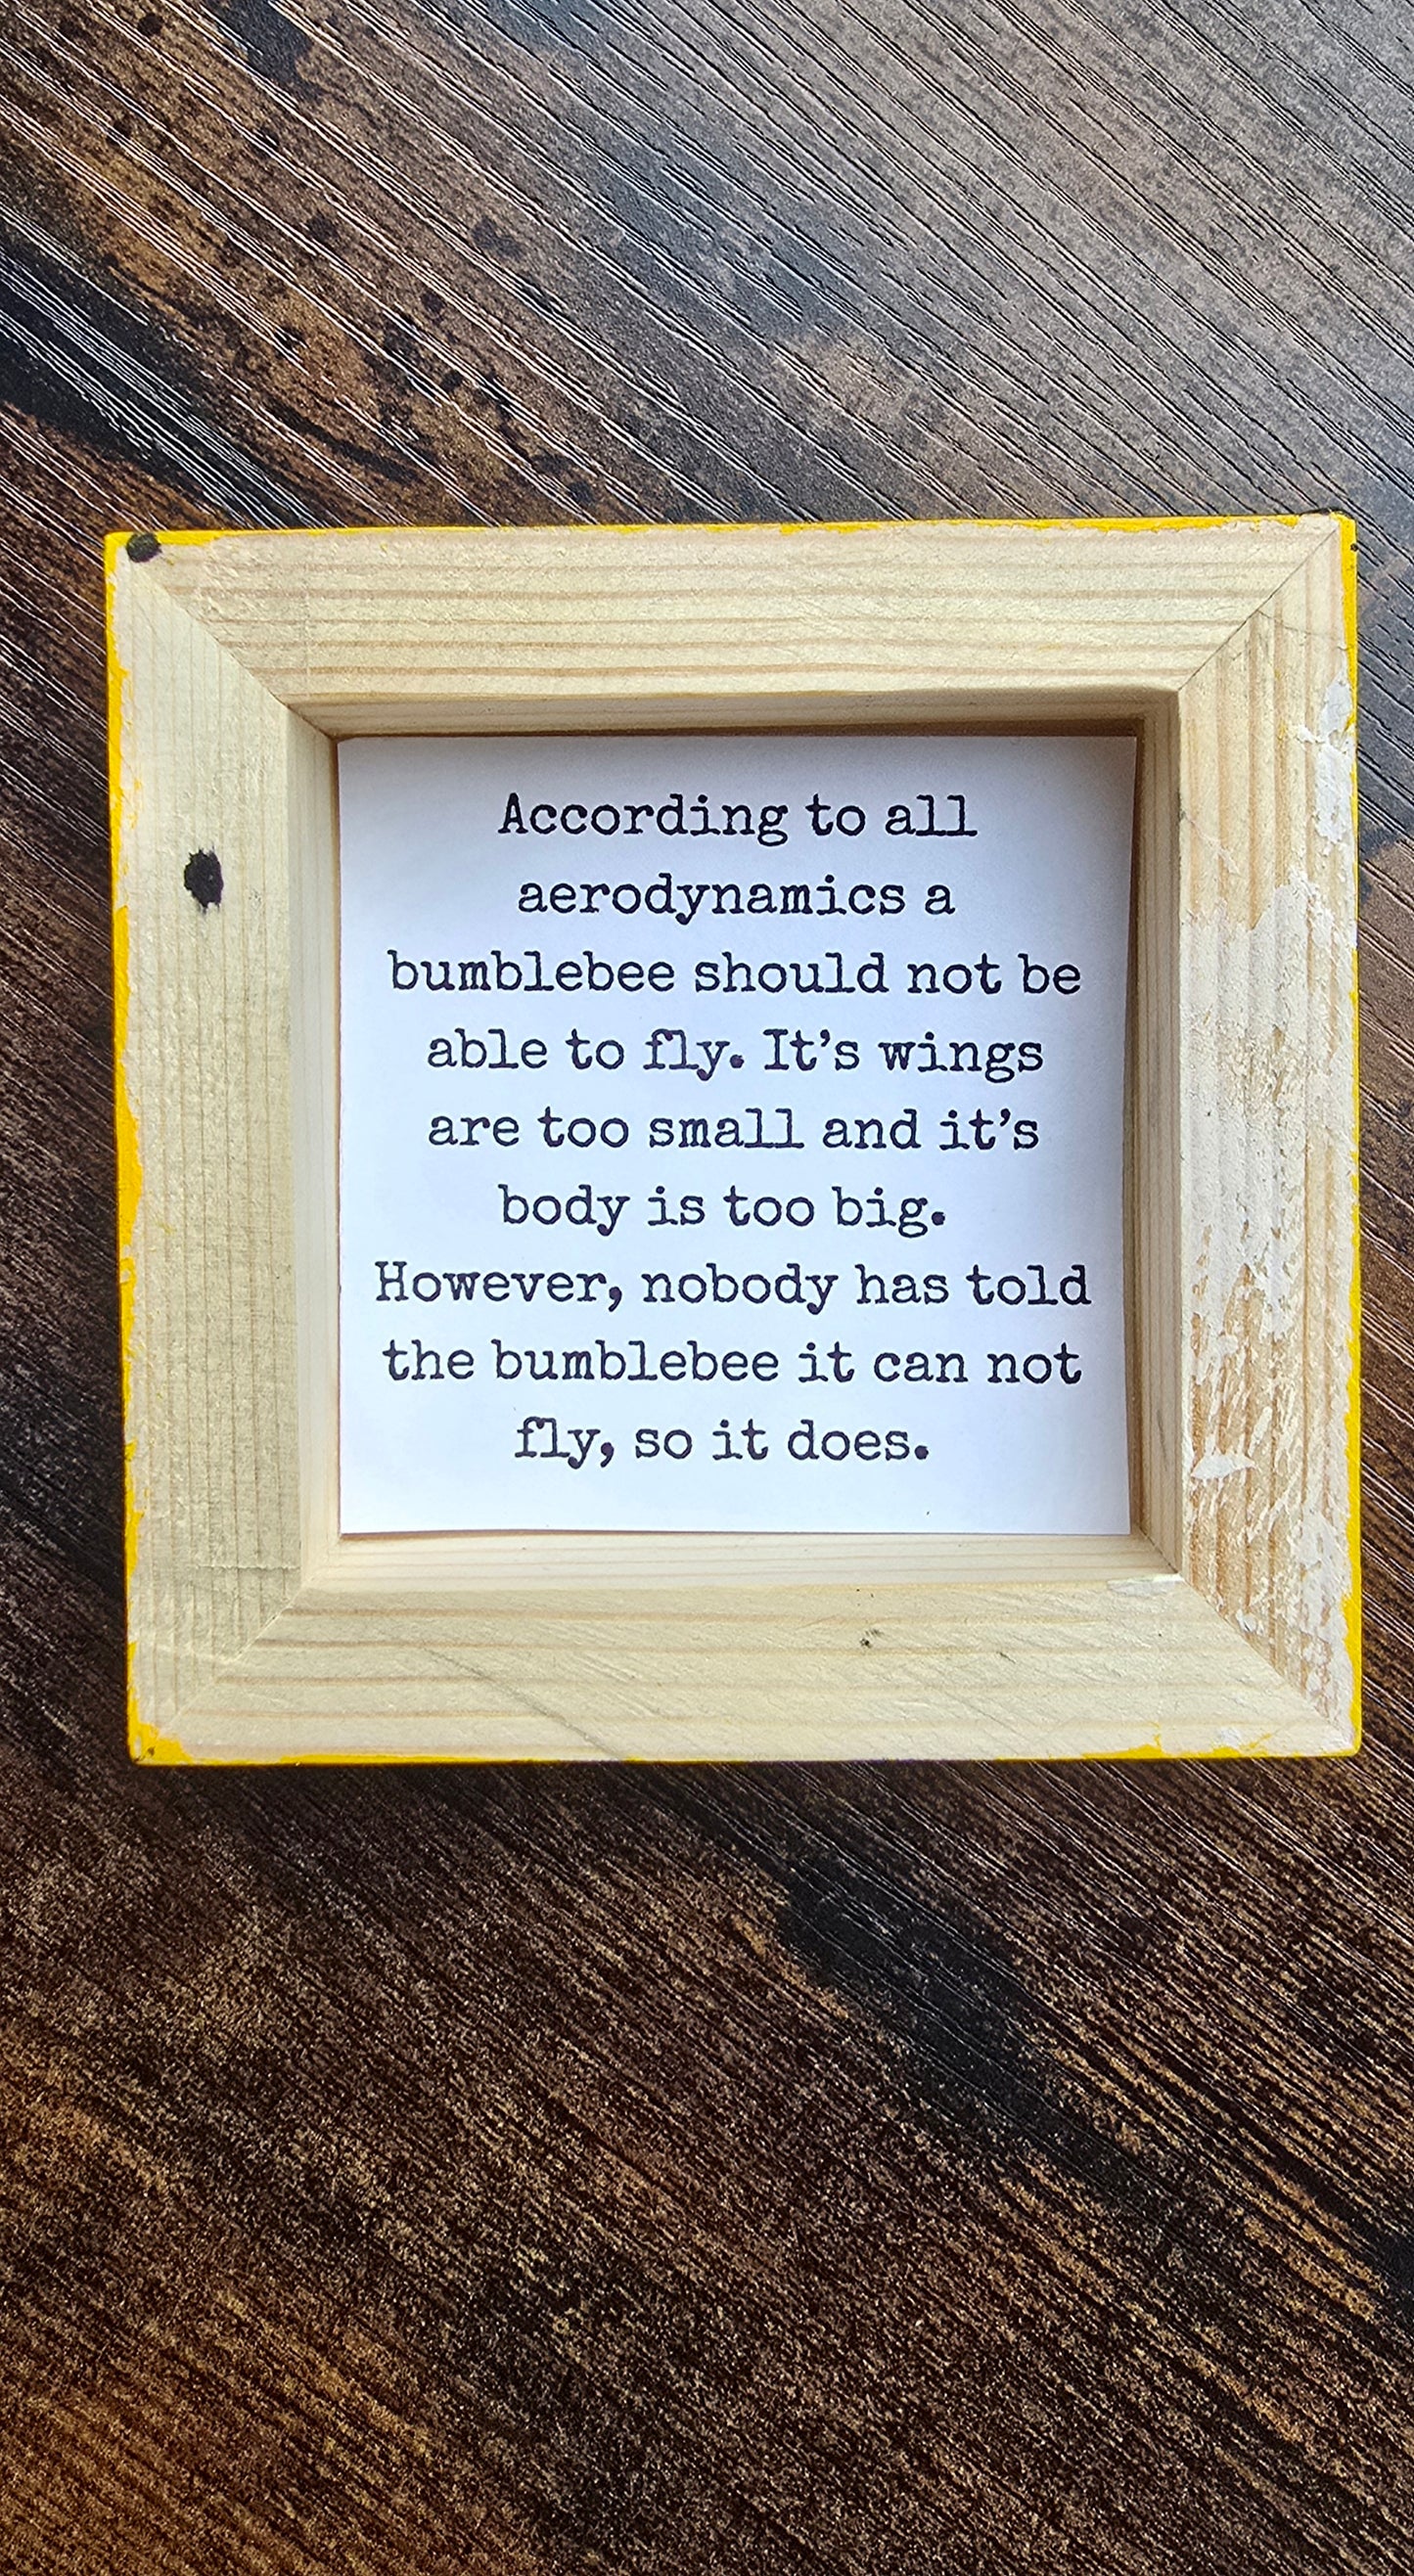 According to all
aerodynamics a
bumblebee should not be
able to fly. It’s wings
are too small and it’s
body is too big.
However, nobody has told
the bumblebee it can not
fly, so it does.